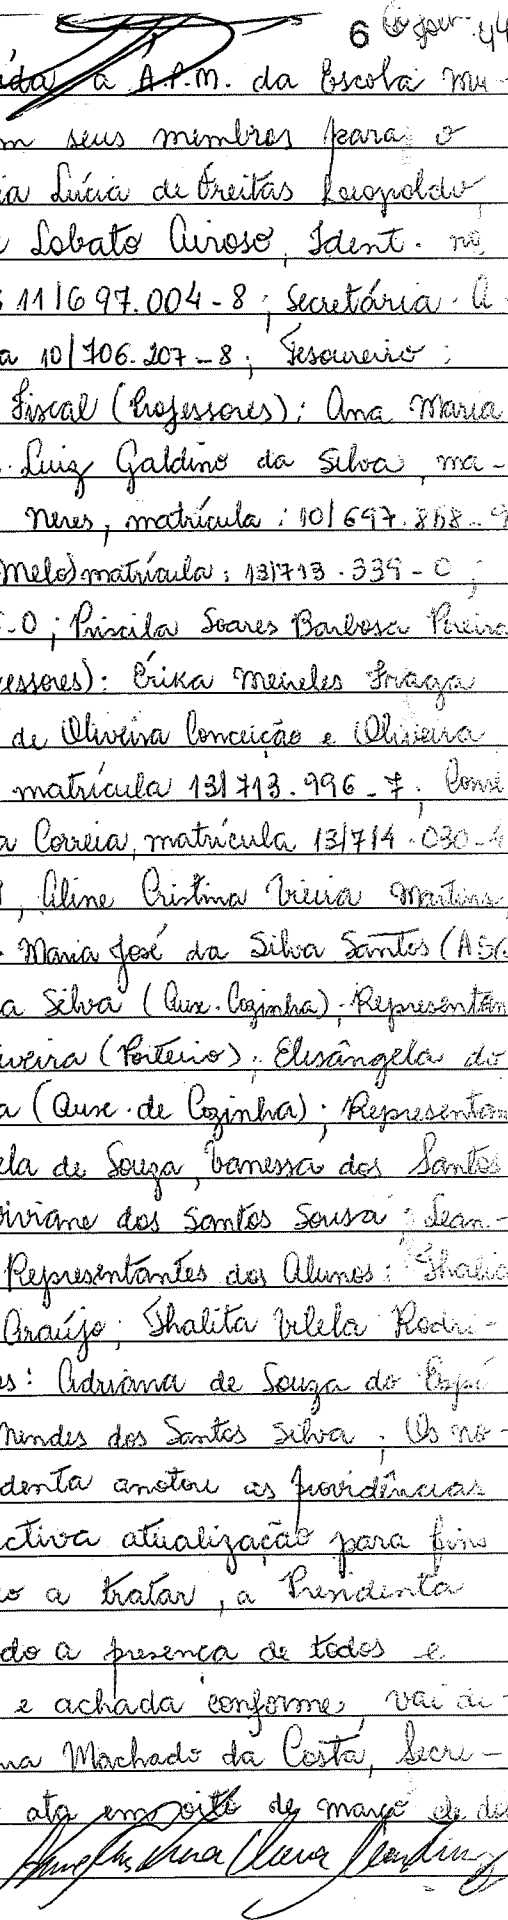 6
ida a A.P.M. da Escola Mu-
m seus membros para o
ia Lúcia de Freitas Leopoldo,
Lobato Airoso, Ident. nº
11/697.004-8; Secretária: A
a 10/706.207-8; Tesoureiro:
Fiscal (Professores): Ana Maria
Luiz Galdino da Silva, ma-
Neres, matrícula: 10/697.858-9
Melo) matrícula: 13/713.339-0;
-0; Priscila Soares Barbosa Pereira
essores): Érika Meireles Fraga
de Oliveira Conceição e Oliveira
matrícula 13/713.996-7; Conse
a Correia, matrícula 13/714.030-4
, Aline Cristina Vieira Martins,
Maria José da Silva Santos (ASG
a Silva (Aux. Cozinha); Representan
iveira (Porteiro); Elisângela do
a (Aux. de Cozinha); Representan
ela de Souza, Vanessa dos Santos
iviane dos Santos Sousa; Jean-
Representantes dos Alunos: Thalia
Araújo; Thalita Vilela Rodri-
es: Adriana de Souza do Espí
Mendes dos Santos Silva. Os no-
denta anotou as providências
ctiva atualização para fins
o a tratar, a Presidenta
do a presença de todos e
e achada conforme, vai di-
na Machado da Costa, Secre-
ata em oito de março de do